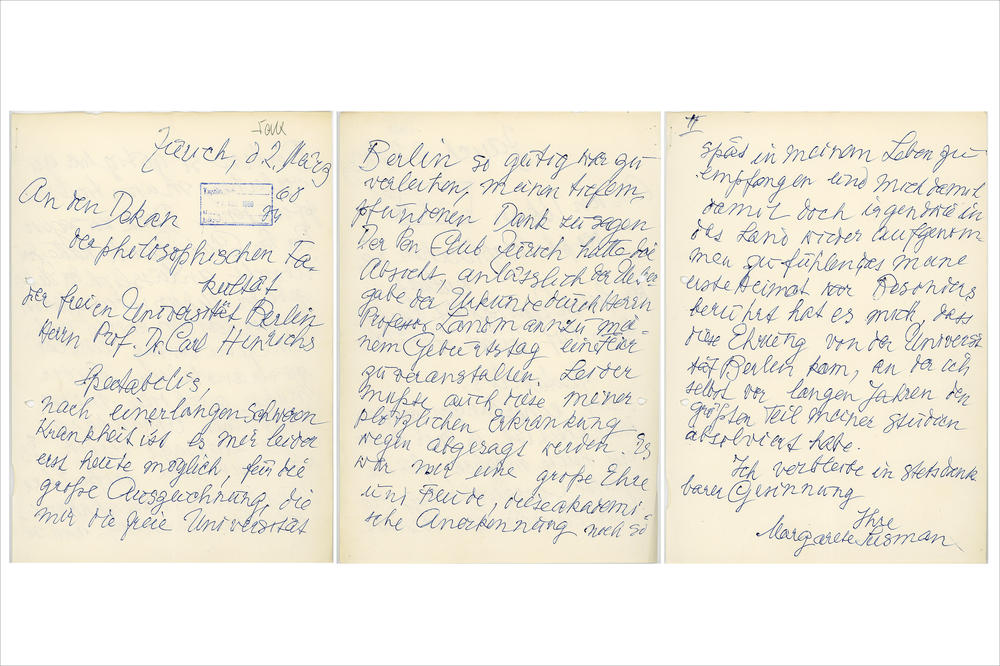 Zürich, d 2. März
60
An den Dekan
der philosophischen Fa-
kultät
der freien Universität Berlin
Herrn Prof. Dr. Carl Hinrichs
Spectabilis,
nach einer langen schweren
Krankheit ist es mir leider
erst heute möglich, für die
große Auszeichnung, die
mir die freie Universität
Berlin so gütig war zu
verleihen, meinen tiefem-
pfundenen Dank zu sagen
Der Pen Club Zürich hatte die
Absicht, anlässlich der Ueber
gabe der Urkunde durch Herrn
Professor Landmann zu mei-
nem Geburtstag eine Feier
zu veranstalten. Leider
mußte auch diese meiner
plötzlichen Erkrankung
wegen abgesagt werden. Es
war mir eine große Ehre
und Freude, diese akademi-
sche Anerkennung noch so
II
spät in meinem Leben zu
empfangen und mich damit
damit doch irgendwie in
das Land wieder aufgenom
men zu fühlen, das meine
erste Heimat war Besonders
berührt hat es mich, dass
diese Ehrung von der Universi
tät Berlin kam, an der ich
selbst vor langen Jahren den
größten Teil meiner Studien
absolviert habe.
Ich verbleibe in stets dank
barer Gesinnung
Ihre
Margarete Susman